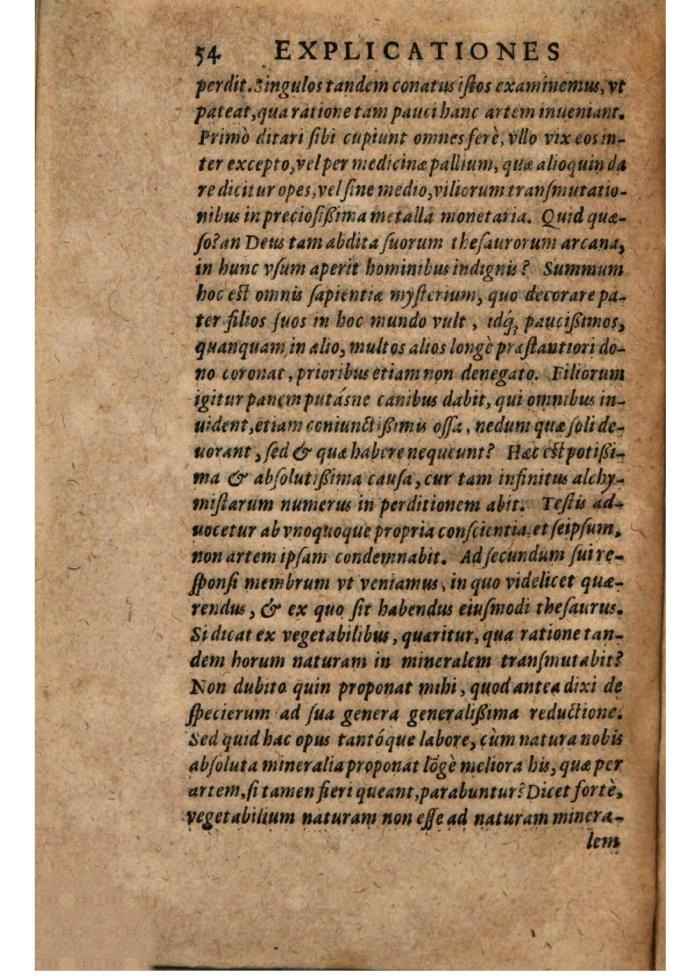 54 EXPLICATIONES
perdit. Singulos tandem conatus iſtos examinemus, vt
pateat, qua ratione tam pauci hanc artem inueniant.
Primò ditari ſibi cupiunt omnes ferè, vllo vix eos in-
ter excepto, vel per medicinæ pallium, quæ alioquin da
re dicitur opes, vel ſine medio, viliorum tranſmutatio-
nibus in precioſißima metalla monetaria. Quid quæ-
ſo? an Deus tam abdita ſuorum theſaurorum arcana,
in hunc vſum aperit hominibus indignis? Summum
hoc eſt omnis ſapientiæ myſterium, quo decorare pa-
ter filios ſuos in hoc mundo vult, idq́; paucißimos,
quanquam in alio, multos alios longè præſtantiori do-
no coronat, prioribus etiam non denegato. Filiorum
igitur panem putásne canibus dabit, qui omnibus in-
uident, etiam coniunctißimis oſſa, nedum quæ ſoli de-
uorant, ſed & quæ habere nequeunt? Hæc eſt potißi-
ma & abſolutißima cauſa, cur tam infinitus alchy-
miſtarum numerus in perditionem abit. Teſtis ad-
uocetur ab vnoquoque propria conſcientia, et ſeipſum,
non artem ipſam condemnabit. Ad ſecundum ſui re-
ſponſi membrum vt veniamus, in quo videlicet quæ-
rendus, & ex quo ſit habendus eiuſmodi theſaurus.
Si dicat ex vegetabilibus, quæritur, qua ratione tan-
dem horum naturam in mineralem tranſmutabit?
Non dubito quin proponat mihi, quod antea dixi de
ſpecierum ad ſua genera generalißima reductione.
Sed quid hac opus tantóque labore, cùm natura nobis
abſoluta mineralia proponat lõgè meliora his, quæ per
artem, ſi tamen fieri queant, parabuntur? Dicet fortè,
vegetabilium naturam non eſſe ad naturam minera-
lem